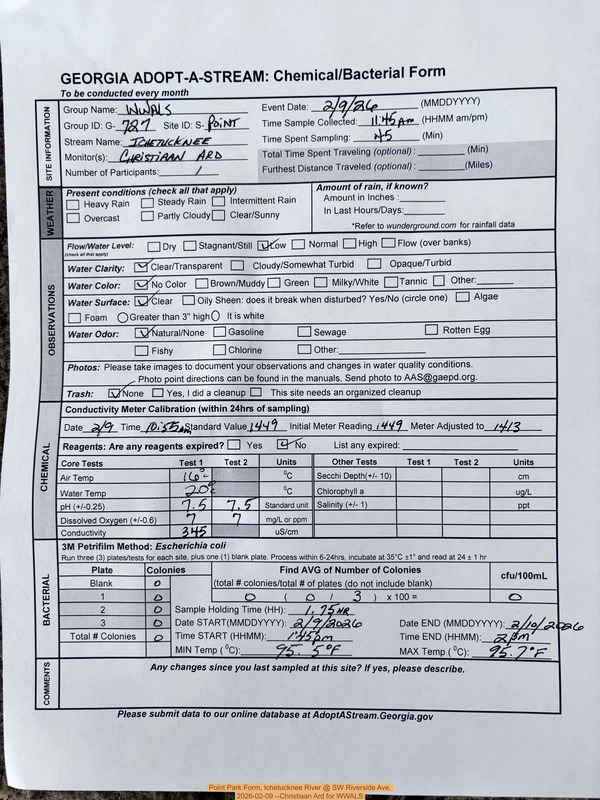 GEORGIA ADOPT-A-STREAM: Chemical/Bacterial Form
To be conducted every month
SITE INFORMATION
Group Name: WWALS
Group ID: G- 727 Site ID: S- POINT
Stream Name: ICHETUCKNEE
Monitor(s): CHRISTIAAN ARD
Number of Participants: 1
Event Date: 2/9/26 (MMDDYYYY)
Time Sample Collected: 11:45 Am (HHMM am/pm)
Time Spent Sampling: 45 (Min)
Total Time Spent Traveling (optional): (Min)
Furthest Distance Traveled (optional): (Miles)
WEATHER
Present conditions (check all that apply)
Heavy Rain Steady Rain Intermittent Rain
Overcast Partly Cloudy Clear/Sunny
Amount of rain, if known?
Amount in Inches:
In Last Hours/Days:
*Refer to wunderground.com for rainfall data
OBSERVATIONS
Flow/Water Level: Dry Stagnant/Still Low Normal High Flow (over banks)
(check all that apply)
Water Clarity: Clear/Transparent Cloudy/Somewhat Turbid Opaque/Turbid
Water Color: No Color Brown/Muddy Green Milky/White Tannic Other:
Water Surface: Clear Oily Sheen: does it break when disturbed? Yes/No (circle one) Algae
Foam Greater than 3" high It is white
Water Odor: Natural/None Gasoline Sewage Rotten Egg
Fishy Chlorine Other:
Photos: Please take images to document your observations and changes in water quality conditions.
Photo point directions can be found in the manuals. Send photo to AAS@gaepd.org.
Trash: None Yes, I did a cleanup This site needs an organized cleanup
CHEMICAL
Conductivity Meter Calibration (within 24hrs of sampling)
Date 2/9 Time 10:55 Am Standard Value 1449 Initial Meter Reading 1449 Meter Adjusted to 1413
Reagents: Are any reagents expired? Yes No List any expired:
Core Tests Test 1 Test 2 Units Other Tests Test 1 Test 2 Units
Air Temp 16°C °C Secchi Depth(+/- 10) cm
Water Temp 20°C °C Chlorophyll a ug/L
pH (+/-0.25) 7.5 7.5 Standard unit Salinity (+/- 1) ppt
Dissolved Oxygen (+/-0.6) 7 7 mg/L or ppm
Conductivity 345 uS/cm
BACTERIAL
3M Petrifilm Method: Escherichia coli
Run three (3) plates/tests for each site, plus one (1) blank plate. Process within 6-24hrs, incubate at 35°C ±1° and read at 24 ± 1 hr
Plate Colonies
Blank 0
1 0
2 0
3 0
Total # Colonies 0
Find AVG of Number of Colonies
(total # colonies/total # of plates (do not include blank)
0 ( 0 / 3 ) x 100 =
cfu/100mL
0
Sample Holding Time (HH): 1.75 HR
Date START(MMDDYYYY): 2/9/2026 Date END (MMDDYYYY): 2/10/2026
Time START (HHMM): 1:45pm Time END (HHMM): 2pm
MIN Temp (°C): 95.5°F MAX Temp (°C): 95.7°F
COMMENTS
Any changes since you last sampled at this site? If yes, please describe.
Please submit data to our online database at AdoptAStream.Georgia.gov
Point Park Form, Ichetucknee River @ SW Riverside Ave.
2026-02-09 --Christiaan Ard for WWALS